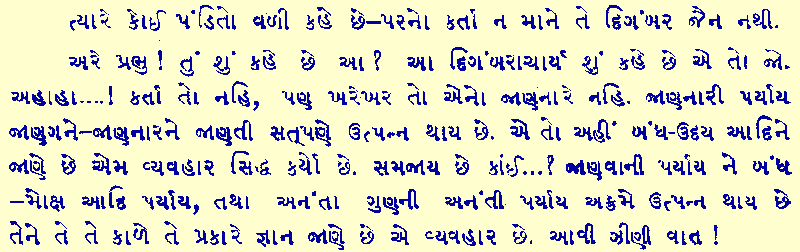 ત્યારે કોઈ પંડિતો વળી કહે છે–પરનો કર્તા ન માને તે દિગંબર જૈન નથી.
અરે પ્રભુ! તું શું કહે છે આ? આ દિગંબરાચાર્ય શું કહે છે એ તો જો.
અહાહા....! કર્તા તો નહિ, પણ ખરેખર તો એનો જાણનારે નહિ. જાણનારી પર્યાય
જાણગને–જાણનારને જાણતી સત્પણે ઉત્પન્ન થાય છે. એ તો અહીં બંધ-ઉદય આદિને
જાણે છે એમ વ્યવહાર સિદ્ધ કર્યો છે. સમજાય છે કાંઈ...? જાણવાની પર્યાય ને બંધ
–મોક્ષ આદિ પર્યાય, તથા અનંતા ગુણની અનંતી પર્યાય અક્રમે ઉત્પન્ન થાય છે
તેને તે તે કાળે તે પ્રકારે જ્ઞાન જાણે છે એ વ્યવહાર છે. આવી ઝીણી વાત!